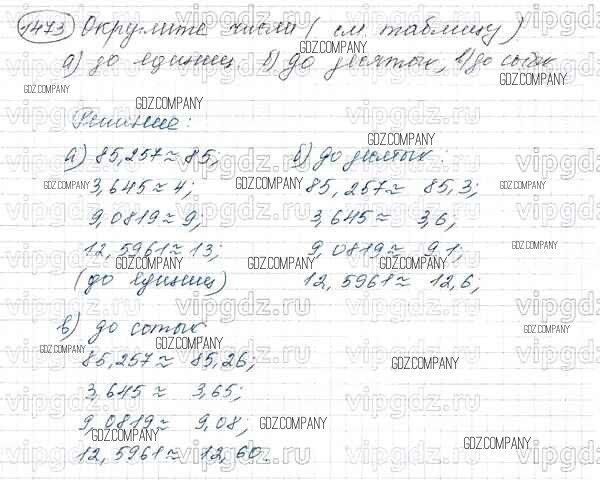 1473 Округлите числа (см. таблицу)
а) до единиц. б) до десятых, в) до сотых
Решение:
а) 85,257 ≈ 85;
3,645 ≈ 4;
9,0819 ≈ 9;
12,5961 ≈ 13;
(до единиц)
б) до десятых:
85,257 ≈ 85,3;
3,645 ≈ 3,6;
9,0819 ≈ 9,1;
12,5961 ≈ 12,6;
в) до сотых
85,257 ≈ 85,26;
3,645 ≈ 3,65;
9,0819 ≈ 9,08;
12,5961 ≈ 12,60.
GDZ.COMPANY
vipgdz.ru